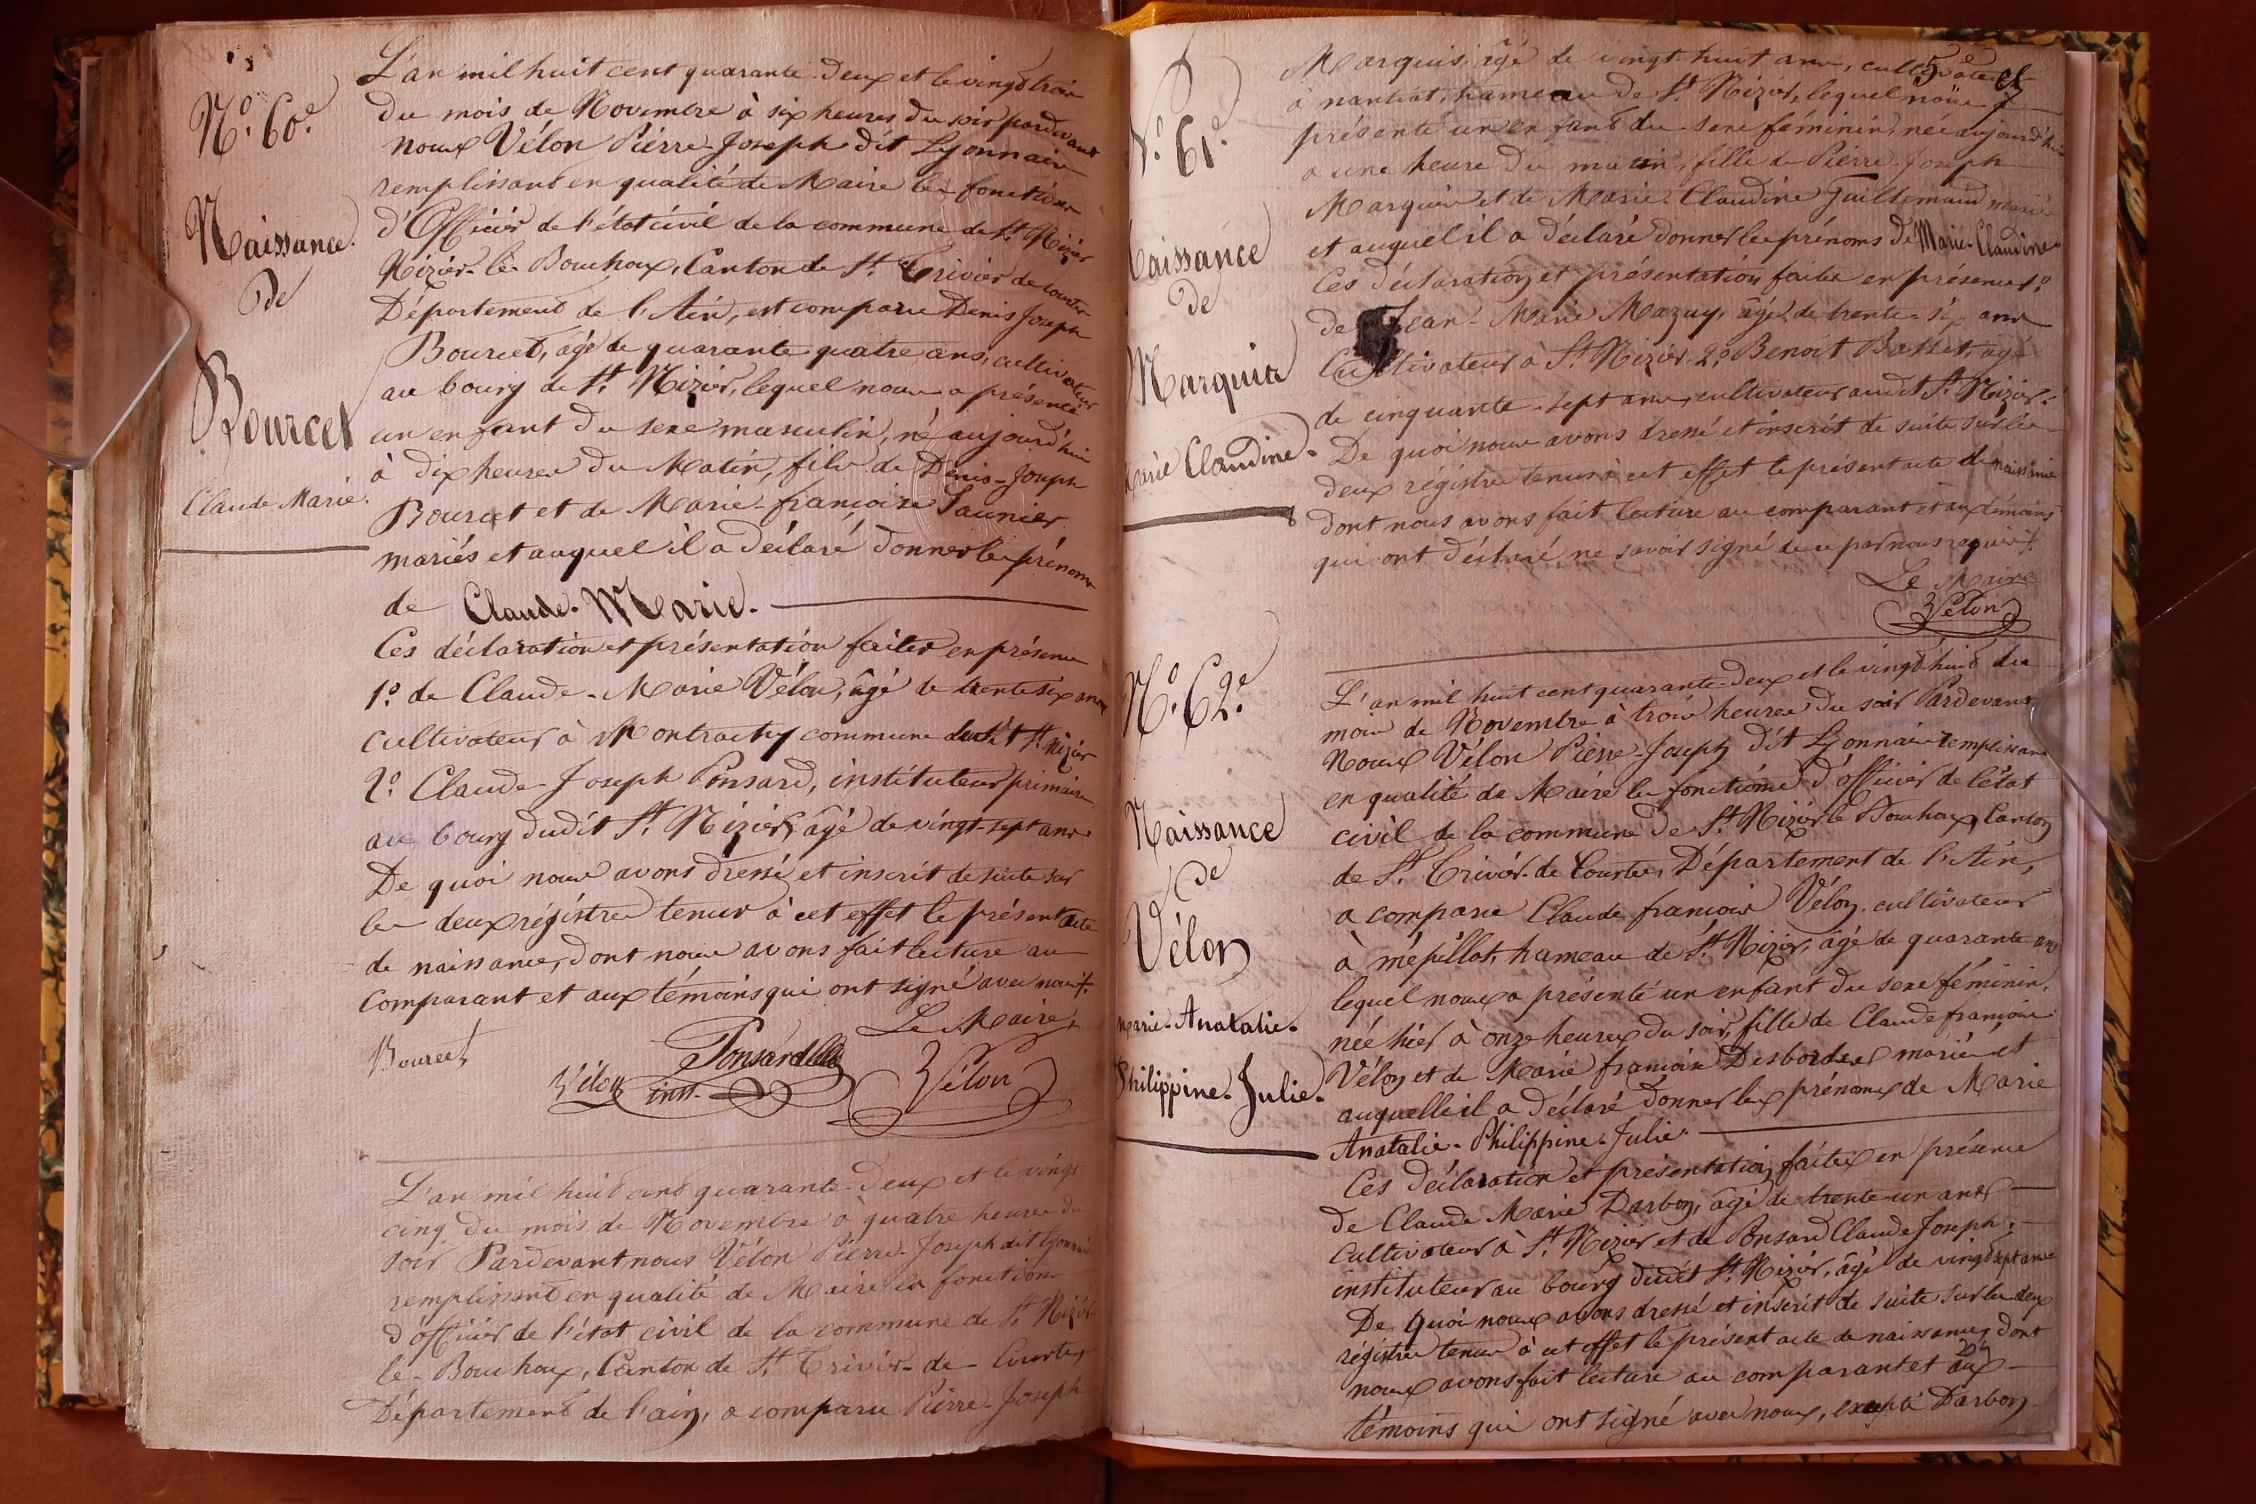 N.º 60.e
Naissance
De
Bourcet
Claude Marie.
L'an mil huit cent quarante deux et le vingt trois
du mois de Novembre à six heures du soir pardevant
noux Vélon Pierre Joseph dit Lyonnais
remplissant en qualité de Maire les fonctions
d'Officier de l'état civil de la commune de St. Nizier
Nizier-le-Bouchoux, Canton de St. Trivier de courtes
Département de l'Ain, est comparu Denis Joseph
Bourcet, âgé de quarante quatre ans, cultivateur
au bourg de St. Nizier, lequel nous a présenté
un enfant du sexe masculin, né aujourd'hui
à dix heures du Matin, fils de Denis-Joseph
Bourcet et de Marie-françoise Saunier
mariés et auquel il a déclaré donner les prénoms
de Claude-Marie.
Ces déclaration et présentation faites en présence
1.º de Claude-Marie Vélon, âgé de trente six ans
cultivateur à Montrachy commune dudit St. Nizier
2.º Claude-Joseph Ponsard, instituteur primaire
au bourg dudit St. Nizier, âgé de vingt-sept ans.
De quoi nous avons dressé et inscrit de suite sur
les deux régistres tenus à cet effet le présent acte
de naissance, dont nous avons fait lecture au
comparant et aux témoins qui ont signé avec nous.
Le Maire,
Bourcet
Vélon
Ponsard
inst.
Vélon
L'an mil huit cent quarante-deux et le vingt
cinq du mois de Novembre à quatre heures du
soir Pardevant nous Vélon Pierre-Joseph dit Lyonnais
remplissant en qualité de Maire les fonctions
d'officier de l'état civil de la commune de St. Nizier
le-Bouchoux, Canton de St. Trivier-de-Courtes
Département de l'ain, a comparu Pierre-Joseph
5e
N.º 61.e
Naissance
de
Marquis
Marie Claudine.
Marquis, âgé de vingt-huit ans, cultivateur
à nantiat, hameau de St. Nizier, lequel nous a
présenté un enfant du sexe féminin, née aujourd'hui
a une heure du matin, fille de Pierre Joseph
Marquis et de Marie-Claudine Guillemaud mariés
et auquel il a déclaré donner les prénoms de Marie-Claudine.
Ces déclaration et présentation faites en présence 1.º
de Jean-Marie Mazuy, âgé de trente-six ans
Cultivateur à St. Nizier. 2.º Benoit Basset, âgé
de cinquante-sept ans, cultivateur audit St. Nizier.
De quoi nous avons dressé et inscrit de suite sur les
deux régistres tenus à cet effet le présent acte de naissance
dont nous avons fait lecture au comparant et aux témoins
qui ont déclaré ne savoir signé de ce par nous requis.
Le Maire
Vélon
N.º 62.e
Naissance
de
Vélon
Marie-Anatalie-
Philippine-Julie.
L'an mil huit cent quarante-deux et le vingt huit du
mois de Novembre à trois heures du soir Pardevant
Noux Vélon Pierre-Joseph dit Lyonnais remplissant
en qualité de Maire les fonctions d'officier de l'état
civil de la commune de St. Nizier le Bouchoux, Canton
de St. Trivier-de-Courtes, Département de l'Ain,
a comparu Claude françois Vélon, cultivateur
à mépillat, hameau de St. Nizier, âgé de quarante ans
lequel noux a présenté un enfant du sexe féminin,
née hier à onze heures du soir, fille de Claude françois
Vélon et de Marie françoise Desbordes mariés et
auquelle il a déclaré donner les prénoms de Marie
Anatalie-Philippine-Julie.
Ces déclaration et présentation faites en présence
de Claude Marie Darbon, âgé de trente-un ans
Cultivateur à St. Nizier et de Ponsard Claude Joseph,
instituteur au bourg dudit St. Nizier, âgé de vingt sept ans
De quoi nous avons dressé et inscrit de suite sur les deux
régistres tenus à cet effet le présent acte de naissance, dont
noux avons fait lecture au comparant et aux
témoins qui ont signé avec noux, excepté Darbon